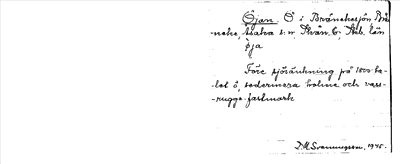 Öjan. Ö i Bräneksjön, Brä-
neke, Asaka s:n, Kvän. 6, Skb. län
öja
Före sjösänkning på 1800-ta-
let ö, sedermera holme och vass-
rugge-fastmark
D.M. Svenungsson, 1945.